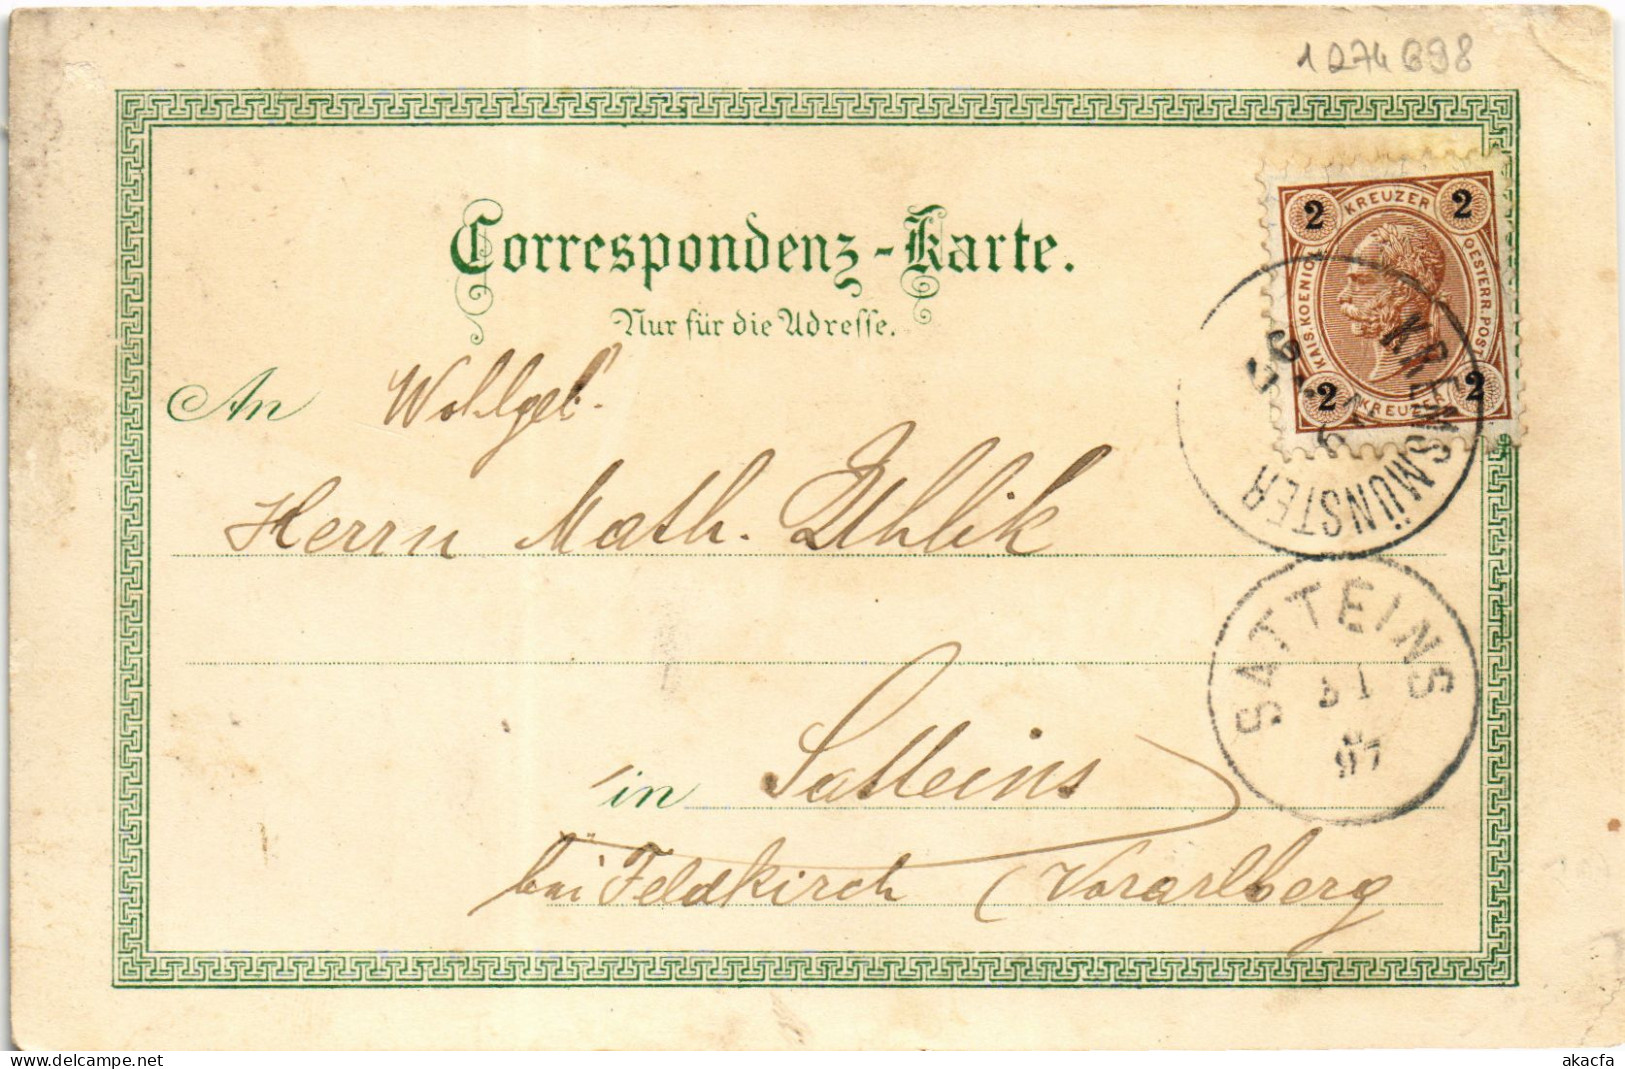 1274698
Correspondenz-Karte.
Nur für die Adresse.
2 KREUZER 2
KAIS. KOENIGL. OESTERR. POST
2 KREUZER 2
KREMSMÜNSTER
An Wohlgeb.
Herrn Math. Uhlik
SATTEINS
31
97
in Satteins
bei Feldkirch (Vorarlberg
delcampe.net
akacfa